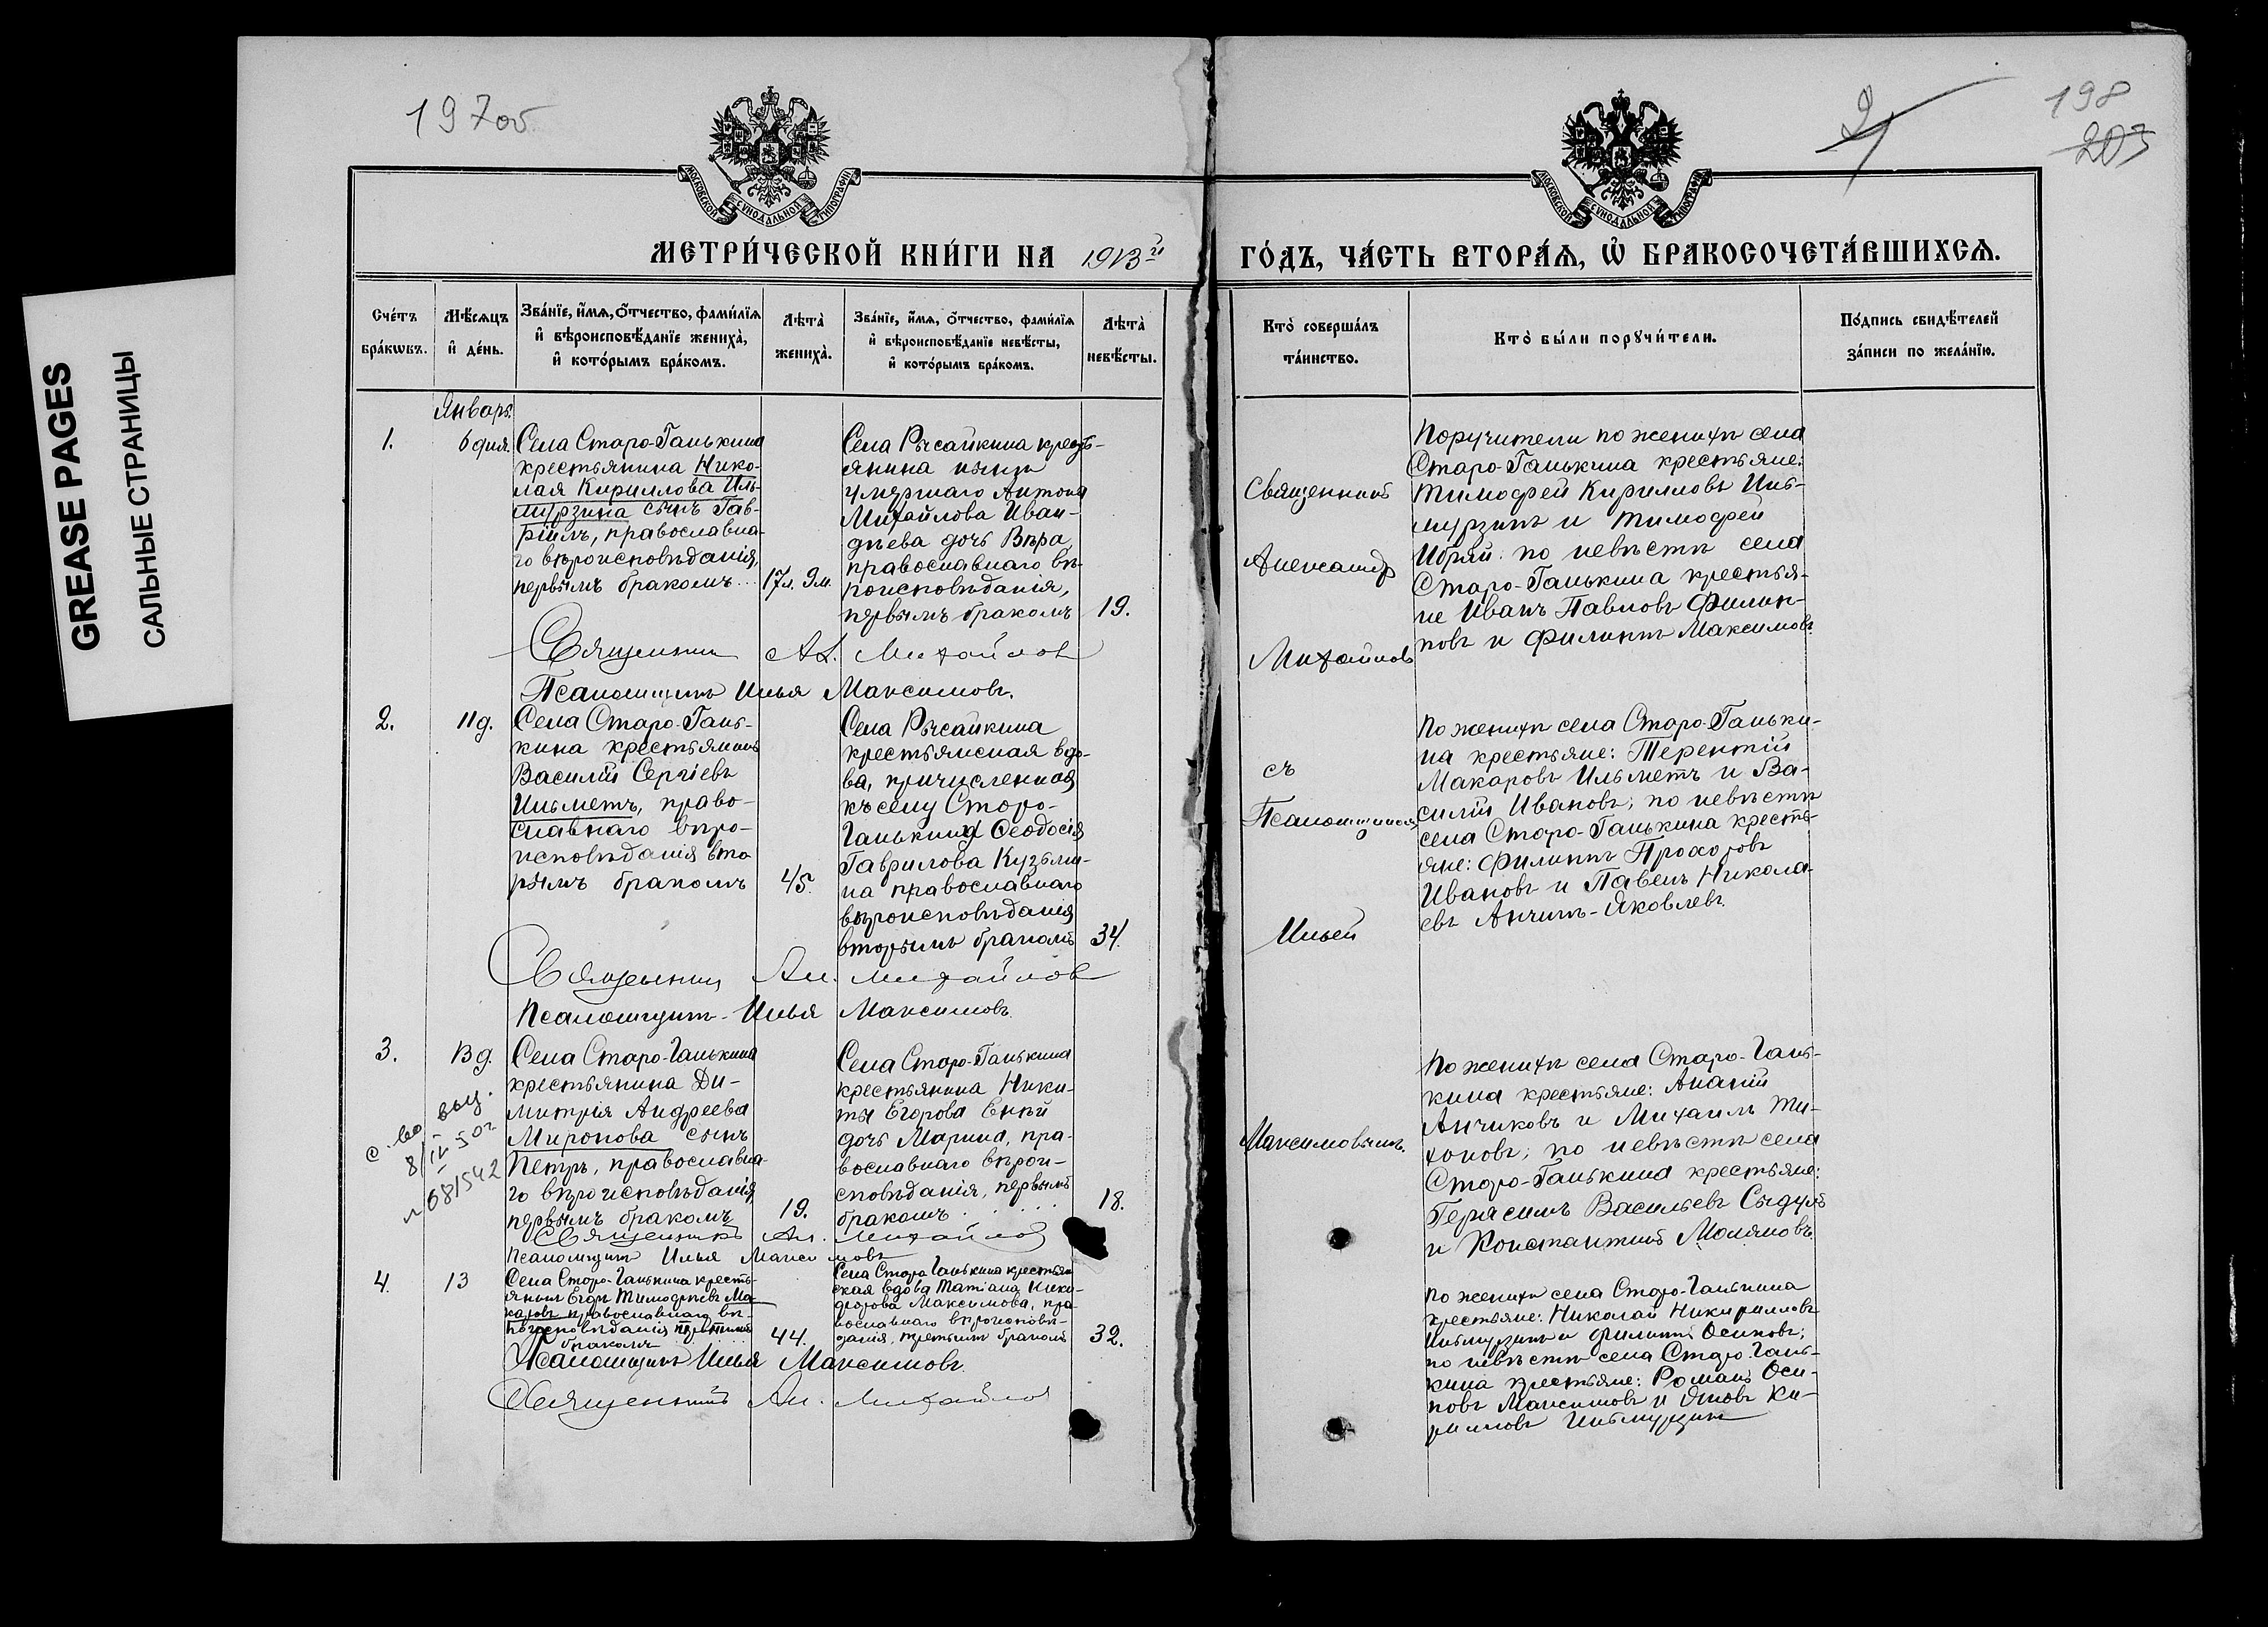 GREASE PAGES
САЛЬНЫЕ СТРАНИЦЫ
197об
МОСКОВСКОЙ СѴНОДАЛЬНОЙ ТИПОГРАФІИ
МЕТРИ́ЧЕСКОЙ КНИ́ГИ НА 1913й
Сче́тъ бра́кѡвъ.
Мѣ́сяцъ и҆ де́нь.
Зва́нїе, и҆́мѧ, ѻ҆́тчество, фами́лїѧ и҆ вѣроисповѣ́данїе жениха̀, и҆ кото́рымъ бра́комъ.
Лѣта̀ жениха̀.
Зва́нїе, и҆́мѧ, ѻ҆́тчество, фами́лїѧ и҆ вѣроисповѣ́данїе невѣ́сты, и҆ кото́рымъ бра́комъ.
Лѣта̀ невѣ́сты.
Январь.
1.
6 дня.
Села Старо-Ганькина
крестьянина Нико-
лая Кириллова Иль-
мурзина сынъ Гав-
ріилъ, православна-
го вѣроисповѣданія,
первымъ бракомъ...
17л. 9м.
Села Рысайкина кресть-
янина нынѣ
умершаго Антона
Михайлова Иван-
дѣева дочь Вѣра,
православнаго вѣ-
роисповѣданія,
первымъ бракомъ
19.
Священникъ Ал. Михайлов
Псаломщикъ Илья Максимовъ.
2.
11д.
Села Старо-Гань-
кина крестьянинъ
Василій Сергіевъ
Ильметъ, право-
славнаго вѣро-
исповѣданія вто
рымъ бракомъ
45.
Села Рысайкина
крестьянская вдо-
ва, причисленная
къ селу Старо-
Ганькину Ѳеодосія
Гаврилова Кузьми-
на православнаго
вѣроисповѣданія
вторымъ бракомъ
34.
Священник Ал. Михайлов
Псаломщикъ Илья Максимовъ.
3.
13 д.
с. во выд.
8/IV-50г
№ 081542
Села Старо-Ганькина
крестьянина Ди-
митрія Андреева
Миронова сынъ
Петръ, православна-
го вѣроисповѣданія
первымъ бракомъ
19.
Села Старо-Ганькина
крестьянина Ники-
ты Егорова Еней
дочь Марина, пра-
вославнаго вѣрои-
сповѣданія, первымъ
бракомъ . . . . .
18.
Священникъ Ал. Михайлов
Псаломщикъ Илья Максимовъ
4.
13
Села Старо-Ганькина кресть-
янинъ Егоръ Тимофеевъ Ма-
каровъ православнаго вѣ-
роисповѣданія третьимъ
бракомъ
44.
Села Старо Ганькина крестьян
ская вдова Татіана Ники-
форова Максимова, пра-
вославнаго вѣроисповѣ-
данія, третьимъ бракомъ
32.
Псаломщикъ Илья Максимовъ
Священникъ Ал. Михайлов
198
203
МОСКОВСКОЙ СѴНОДАЛЬНОЙ ТИПОГРАФІИ
ГО́ДЪ, ЧА́СТЬ ВТОРА́Ѧ, Ѡ҆ БРАКОСОЧЕТА́ВШИХСѦ.
Кто̀ соверша́лъ та́инство.
Кто̀ бы́ли порꙋчи́тели.
По́дпись свидѣ́телей за́писи по жела́нїю.
Священникъ
Александр
Михайловъ
съ
Псаломщикомъ
Ильей
Максимовымъ.
Поручители по женихѣ села
Старо-Ганькина крестьяне:
Тимофей Кирилловъ Иль-
мурзинъ и Тимофей
Ибряй: по невѣстѣ села
Старо-Ганькина крестья-
не Иванъ Павловъ Филип-
повъ и Филиппъ Максимовъ.
По женихѣ села Старо-Ганьки-
на крестьяне: Терентій
Макаровъ Ильметъ и Ва-
силій Ивановъ; по невѣстѣ
села Старо-Ганькина кресть-
яне: Филиппъ Прохоровъ
Ивановъ и Павелъ Никола-
евъ Анчинъ-Яковлевъ.
По женихѣ села Старо-Гань-
кина крестьяне: Ананій
Анчиковъ и Михаилъ Ти-
хоновъ; по невѣстѣ села
Старо-Ганькина крестьяне:
Герасимъ Васильевъ Сыдулъ
и Константинъ Моляновъ.
По женихѣ села Старо-Ганькина
крестьяне: Николай Никирилловъ
Ильмурзинъ и Филиппъ Осиповъ;
по невѣстѣ села Старо-Гань-
кина крестьяне: Романъ Оси-
повъ Максимовъ и Яковъ Ки-
рилловъ Ильмурзин